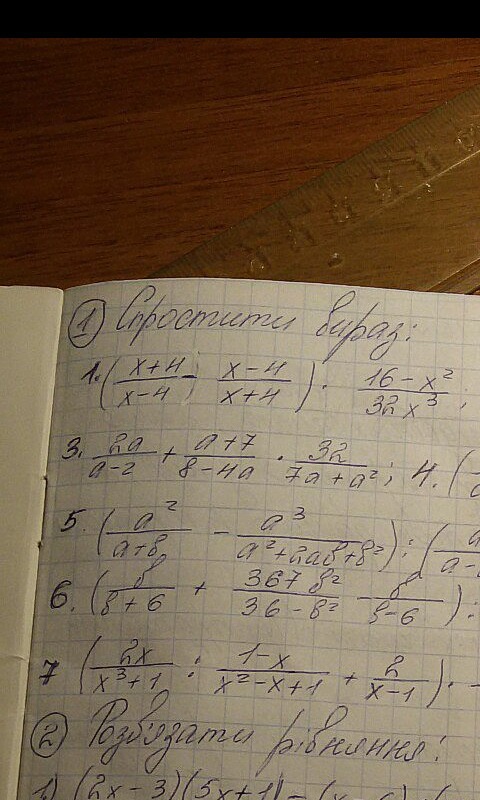 ① Спростити вираз:
1. (x+4/x-4 - x-4/x+4) · 16-x²/32x³;
3. 2a/a-2 + a+7/8-4a · 32/7a+a²; 4. (
5. (a²/a+b - a³/a²+2ab+b²) : (a/a-
6. (b/b+6 + 36+b²/36-b² - b/b-6) :
7 (2x/x³+1 : 1-x/x²-x+1 + 2/x-1) · -
② Розв'язати рівняння:
1) (2x-3)(5x+1)=(x-6)(